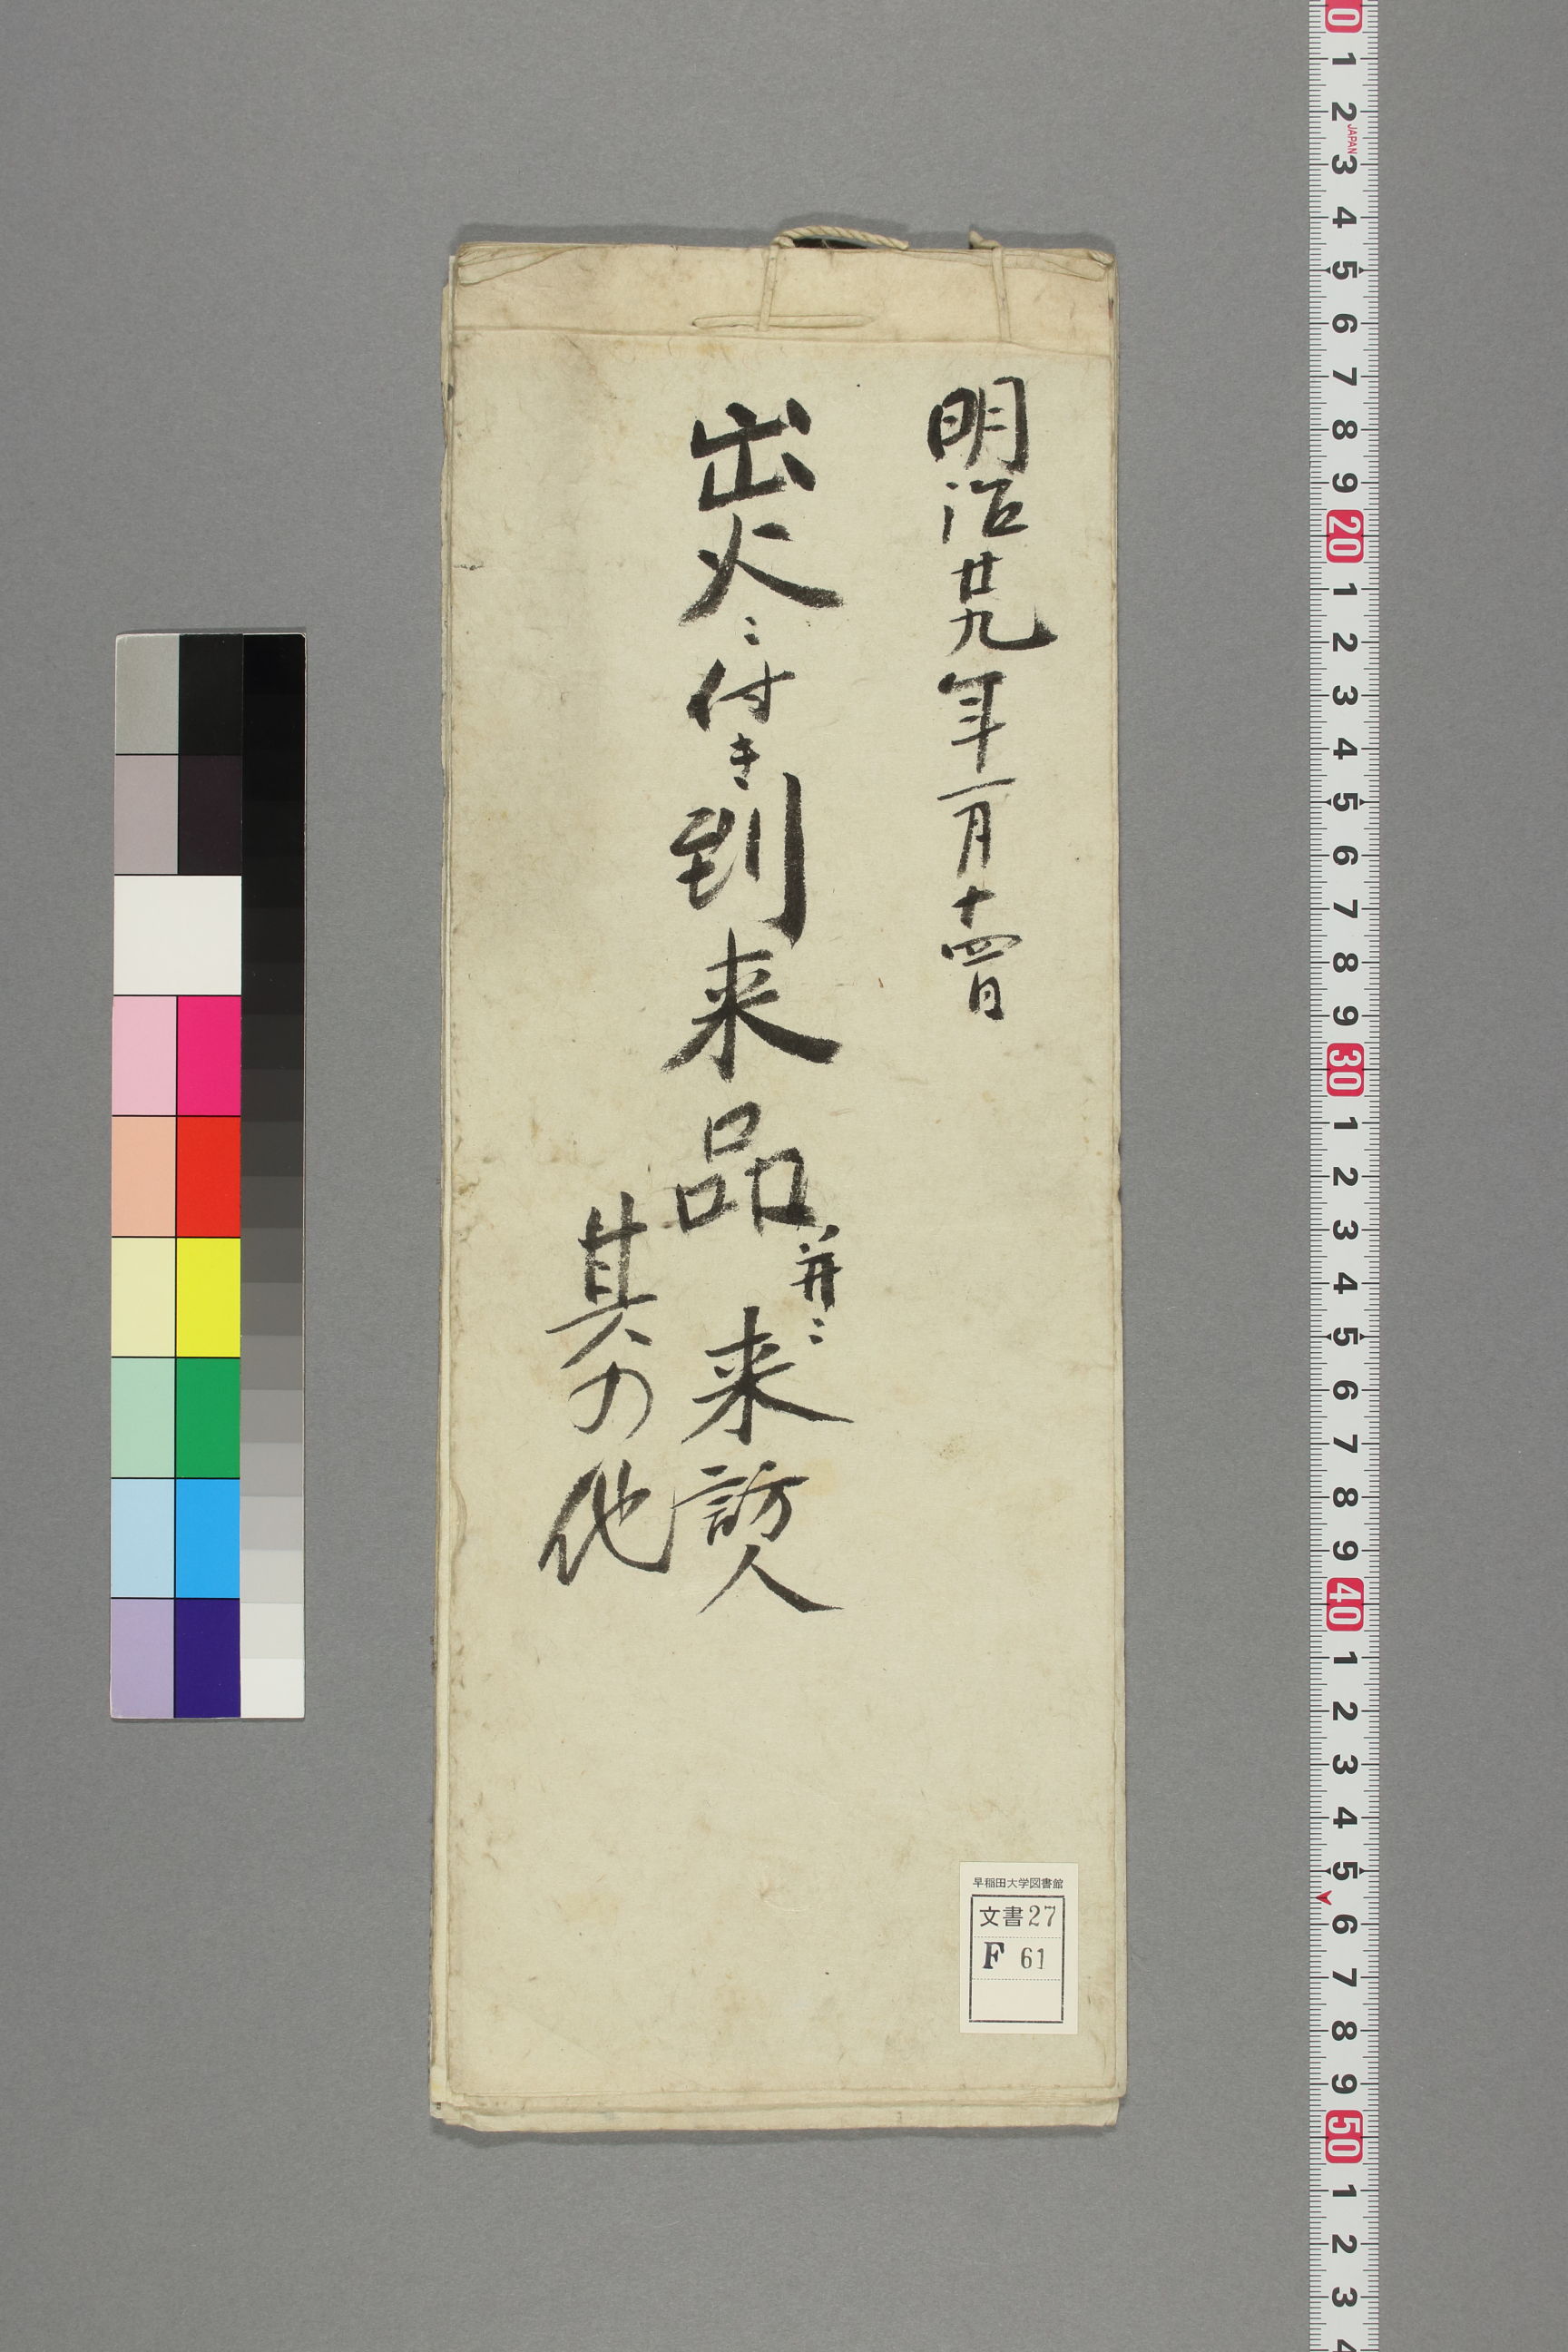 明治廿九年一月十四日
出火ニ付き到来品并ニ来訪人
其の他
早稲田大学図書館
文書27
F 61
JAPAN
0 1 2 3 4 5 6 7 8 9 20 1 2 3 4 5 6 7 8 9 30 1 2 3 4 5 6 7 8 9 40 1 2 3 4 5 6 7 8 9 50 1 2 3 4